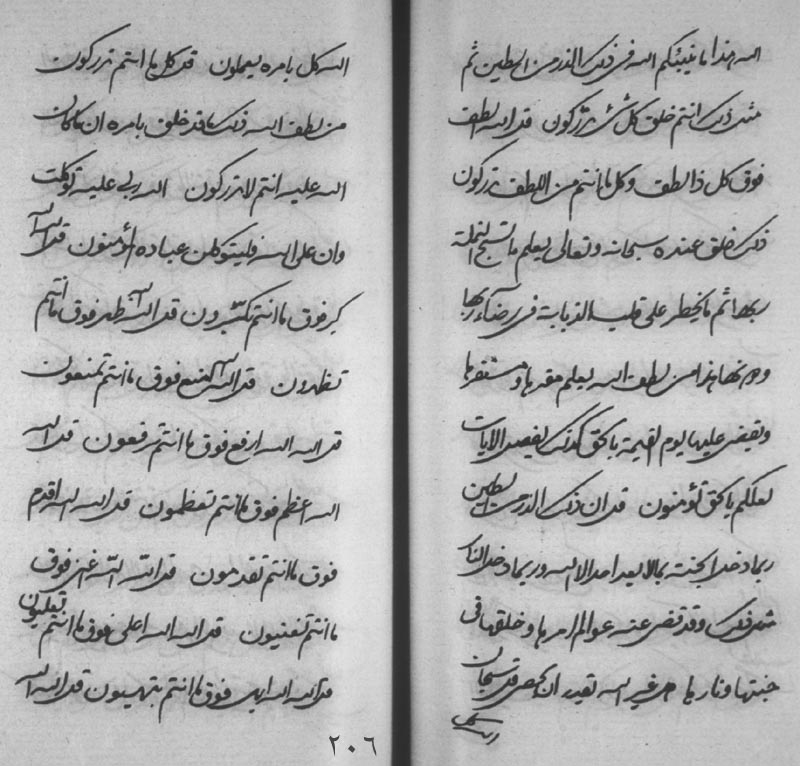 الله هذا ما ينبئكم الله في ذلك الذر من الطين ثم
مثل ذلك انتم خلق كل شيء تدركون قل الله الطف
فوق كل ذا لطف وكل ما انتم من اللطف تدركون
ذلك خلق عنده سبحانه وتعالى يعلم ما تسبح النملة
ربها ثم ما يخطر على قلب الذبابة في رضاء ربها
ودونها هذا من لطف الله يعلم مقرها ومستقرها
ويقضي عليها يوم القيمة بالحق كذلك يفصل الايات
لعلكم بالحق تؤمنون قل ان ذلك الذر من الطين
ربما دخل الجنة بما لا يعد احد الا الله وربما دخل النار
مثل ذلك وقد قضى عنه عوالم امرها وخلقها في
جنتها ونارها من غير الله يقدر ان يحصي قل سبحان
الله كل بامره يعملون قل كل ما انتم تدركون
من لطف الله ذلك ما قد خلق بامره ان ما كان
الله عليه انتم لا تدركون الله ربي عليه توكلت
وان على الله فليتوكلن عباده المؤمنون قل الله الله
اكبر فوق ما انتم تكبرون قل الله اظهر فوق ما انتم
تظهرون قل الله امنع فوق ما انتم تمنعون
قل الله الله ارفع فوق ما انتم ترفعون قل الله
الله اعظم فوق ما انتم تعظمون قل الله الله اقدم
فوق ما انتم تقدمون قل الله الله اغنى فوق
ما انتم تغنيون قل الله الله اعلى فوق ما انتم تعليون
قل الله الله ابهى فوق ما انتم بتهييون قل الله الله
٢٠٦